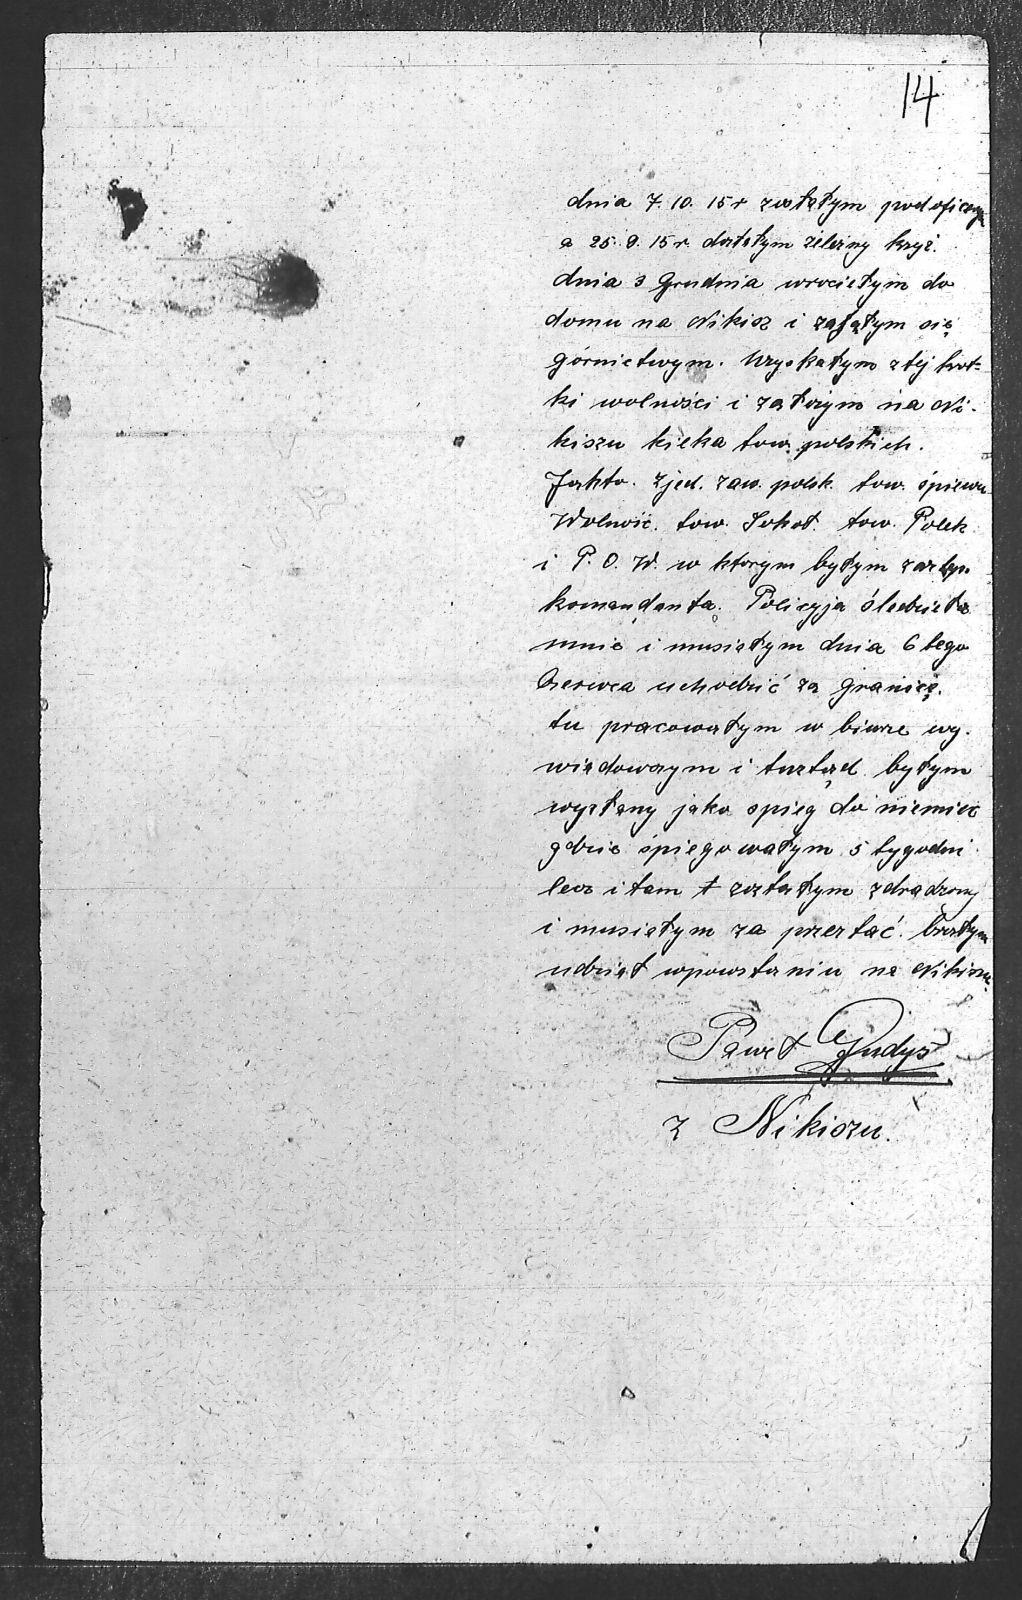 14
dnia 7. 10. 15 r zostałym podoficerym
a 25. 9. 15 r. dostałym żelezny krzyż.
dnia 3 Grudnia wrociełym do
domu na Nikisz i zająłym się
górnictwym. Uzyskałym z tej krot-
ki wolności i założym na Ni-
kiszu kielka tow. polskich.
Jakto. Zjed. zaw. polsk. tow. śpiewu
Wolność. tow. Sokoł. tow. Polek
i P. O. W. w ktorym byłym zastęp.
komendanta. Policyja śledzieła
mnie i musiałym dnia 6 tego
Czerwca uchodzić za granicę.
tu pracowałym w biurze wy-
wiadowczym i tustąd byłym
wysłany jako spieg do niemiec
gdzie śpiegowałym 5 tygodni
lecz i tam zostałym zdradzony
i musiałym za przestać. brałym
udział wpowstaniu na Nikiszu.
Paweł Gudys
z Nikiszu.